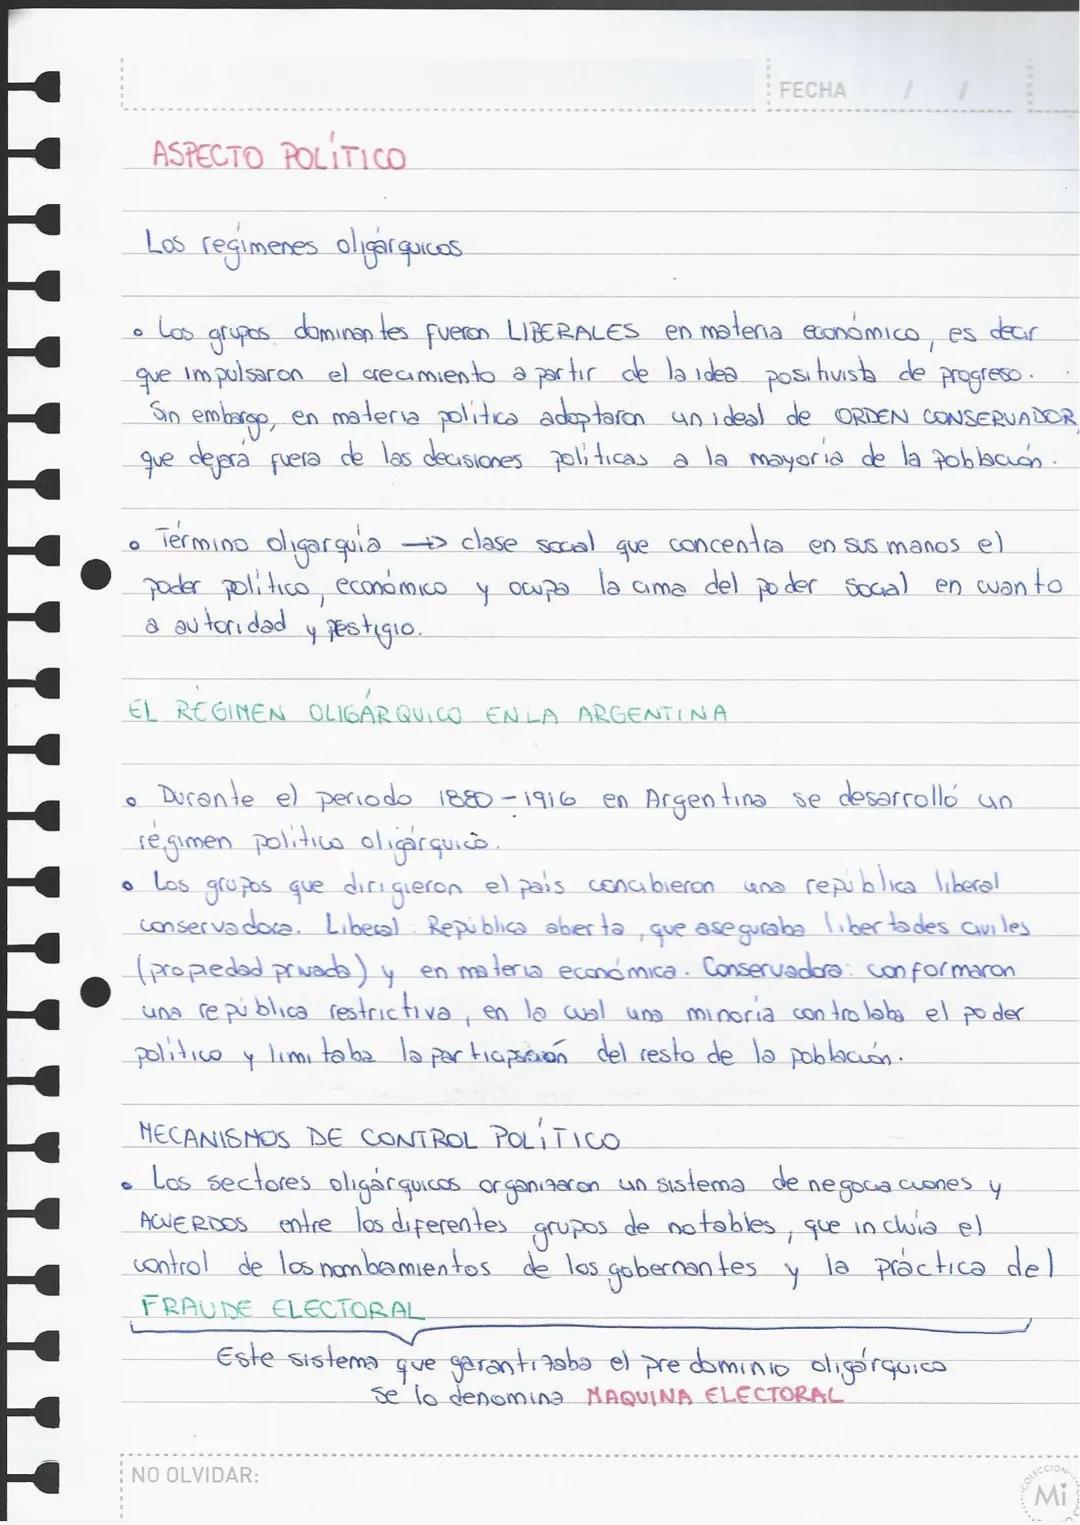 FECHA / /
ASPECTO POLÍTICO
Los regímenes oligárquicos
• Los grupos dominantes fueron LIBERALES en materia económico, es decir
que impulsaron el crecimiento a partir de la idea positivista de progreso.
Sin embargo, en materia política adoptaron un ideal de ORDEN CONSERVADOR,
que dejará fuera de las decisiones políticas a la mayoría de la población.
• Término oligarquía → clase social que concentra en sus manos el
poder político, económico y ocupa la cima del poder social en cuanto
a autoridad y pestigio.
EL RÉGIMEN OLIGÁRQUICO EN LA ARGENTINA
• Durante el periodo 1880-1916 en Argentina se desarrolló un
régimen político oligárquico.
• Los grupos que dirigieron el país concibieron una república liberal
conservadora. Liberal: República abierta, que aseguraba libertades civiles
(propiedad privada) y en materia económica. Conservadora: conformaron
una república restrictiva, en la cual una minoría controlaba el poder
político y limitaba la participación del resto de la población.
MECANISMOS DE CONTROL POLÍTICO
• Los sectores oligárquicos organizaron un sistema de negociaciones y
ACUERDOS entre los diferentes grupos de notables, que incluía el
control de los nombramientos de los gobernantes y la práctica del
FRAUDE ELECTORAL
Este sistema que garantizaba el predominio oligárquico
se lo denomina MAQUINA ELECTORAL
NO OLVIDAR:
COLECCION
Mi